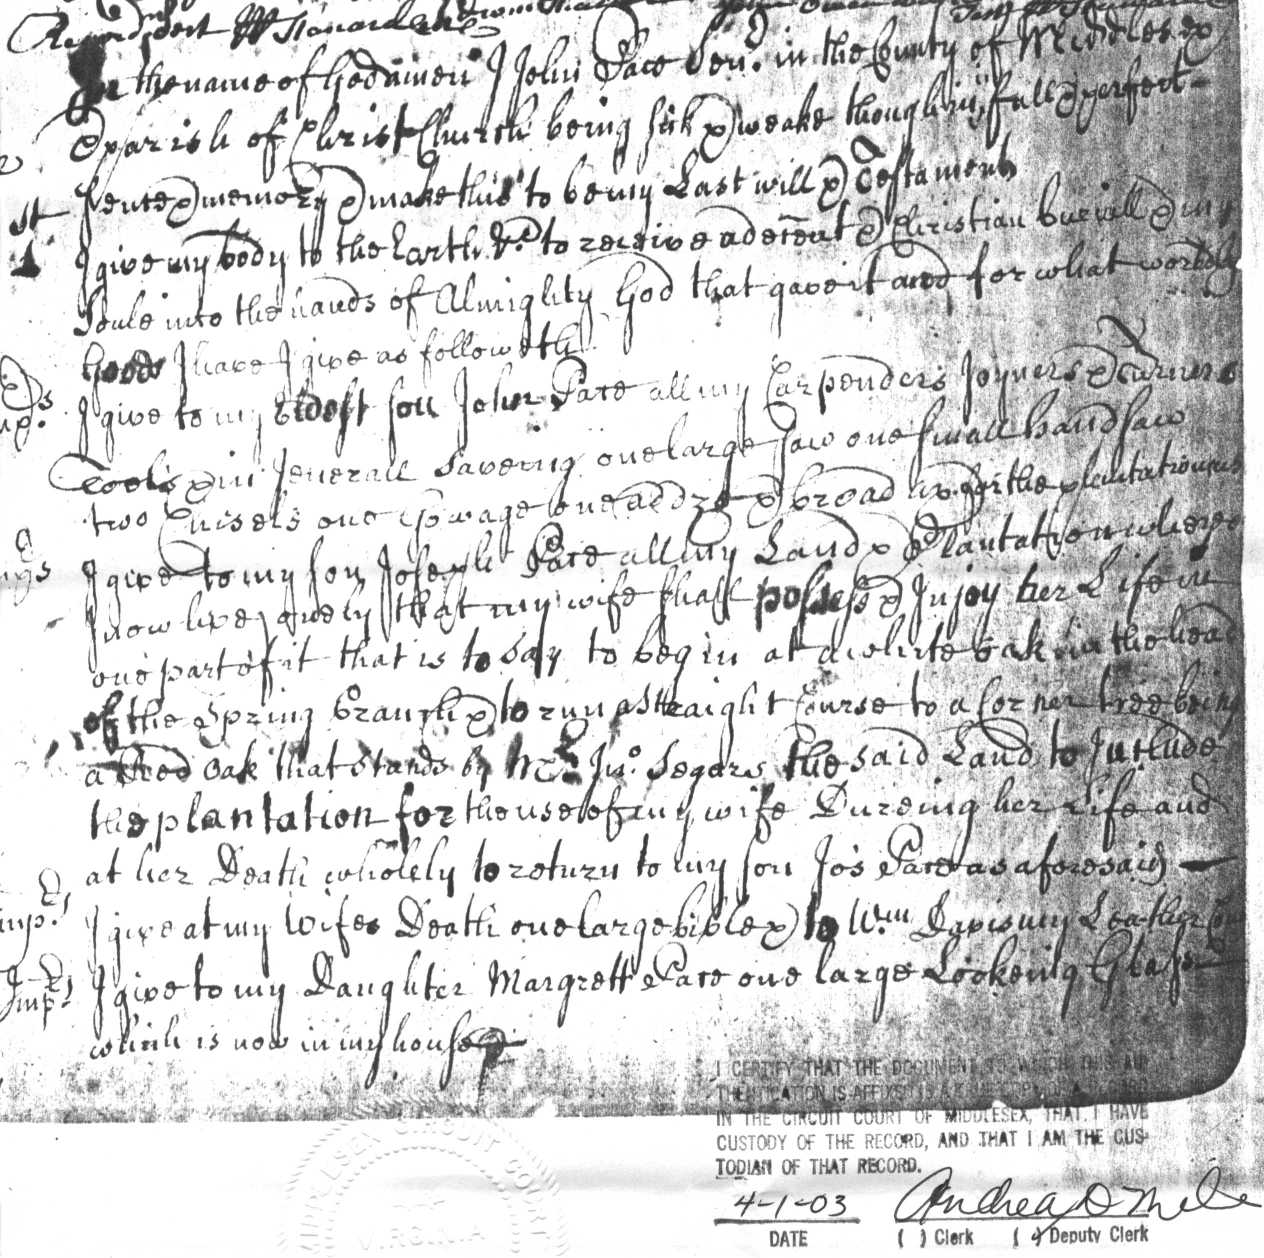 Record pert W Stanard
In the name of God amen I John Pace Senr. in the County of Middlesex
& parish of Christ Church being sick & weake though in full & perfect
sence & memory & make this to be my Last will & Testament
1st I give my body to the Earth to receive a decent & Christian buriall & my
Soule into the hands of Almighty God that gave it and for what worldly
Goods I have I give as followeth
I give to my Eldest son John Pace all my Carpenders Joyners & Turners
Tools & in Jenerall Saveing one large saw one small handsaw
two Chisels one wage one addze & broad ax for the plantation use
I give to my son Joseph Pace all my Land & Plantation where
I now live, onely that my wife shall possess & Injoy her Life in
one part of it that is to say to begin at a white oak in the head
of the Spring branch & to run a straight Course to a Corner tree being
a Red oak that stands by Mr. Jno. Segars the said Land to Include
the plantation for the use of my wife Dureing her Life and
at her Death wholely to return to my son Jos Pace as aforesaid
Imp. I give at my Wifes Death one large bible & to Wm Davis my Leather
Imp. I give to my Daughter Margrett Pace one large Lookeing Glass
which is now in my house
I CERTIFY THAT THE DOCUMENT TO WHICH THIS AU-
THENTICATION IS AFFIXED IS A TRUE COPY OF A RECORD
IN THE CIRCUIT COURT OF MIDDLESEX, THAT I HAVE
CUSTODY OF THE RECORD, AND THAT I AM THE CUS-
TODIAN OF THAT RECORD.
4-1-03 Andrea D
DATE ( ) Clerk ( ✓) Deputy Clerk
MIDDLESEX CIRCUIT COURT
VIRGINIA